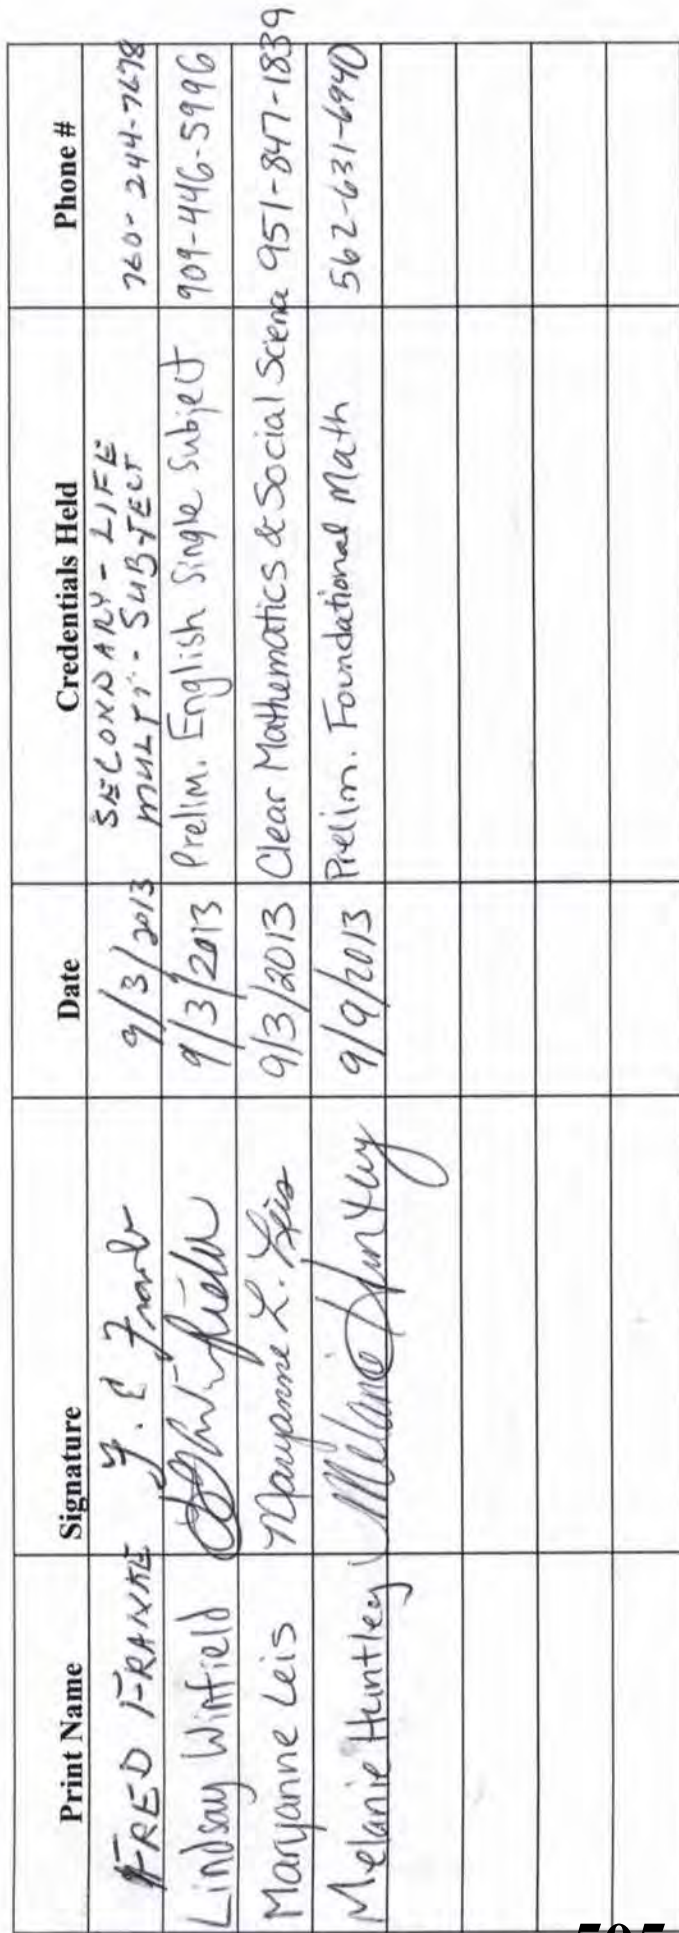 Print Name Signature Date Credentials Held Phone #
FRED FRANKE 9/3/2013 SECONDARY - LIFE 760-244-7678
MULTI - SUBJECT
Lindsay Winfield 9/3/2013 Prelim. English Single Subject 909-446-5996
Maryanne Leis Maryanne L. Leis 9/3/2013 Clear Mathematics & Social Science 951-847-1839
Melanie Huntley Melanie Huntley 9/9/2013 Prelim. Foundational Math 562-631-6940